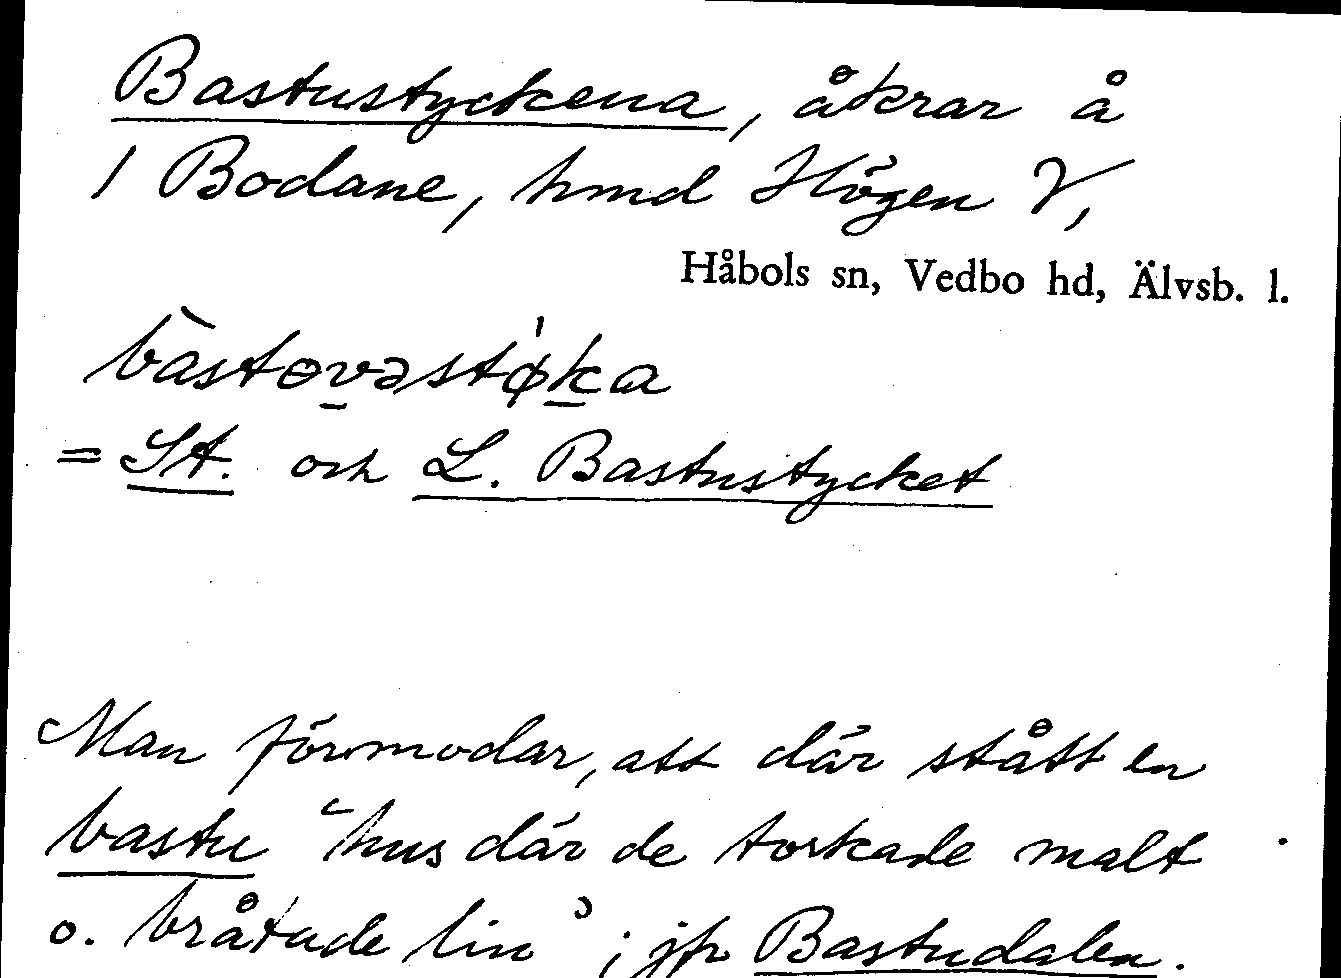 Bastustyckena, åkrar å
1 Bodane, hmd Högen V,
Håbols sn, Vedbo hd, Älvsb. l.
bàstɵvəstø̍ka
= St. och L. Bastustycket
Man förmodar, att där stått en
bastu "hus där de torkade malt
o. bråtade lin"; jfr Bastudalen.